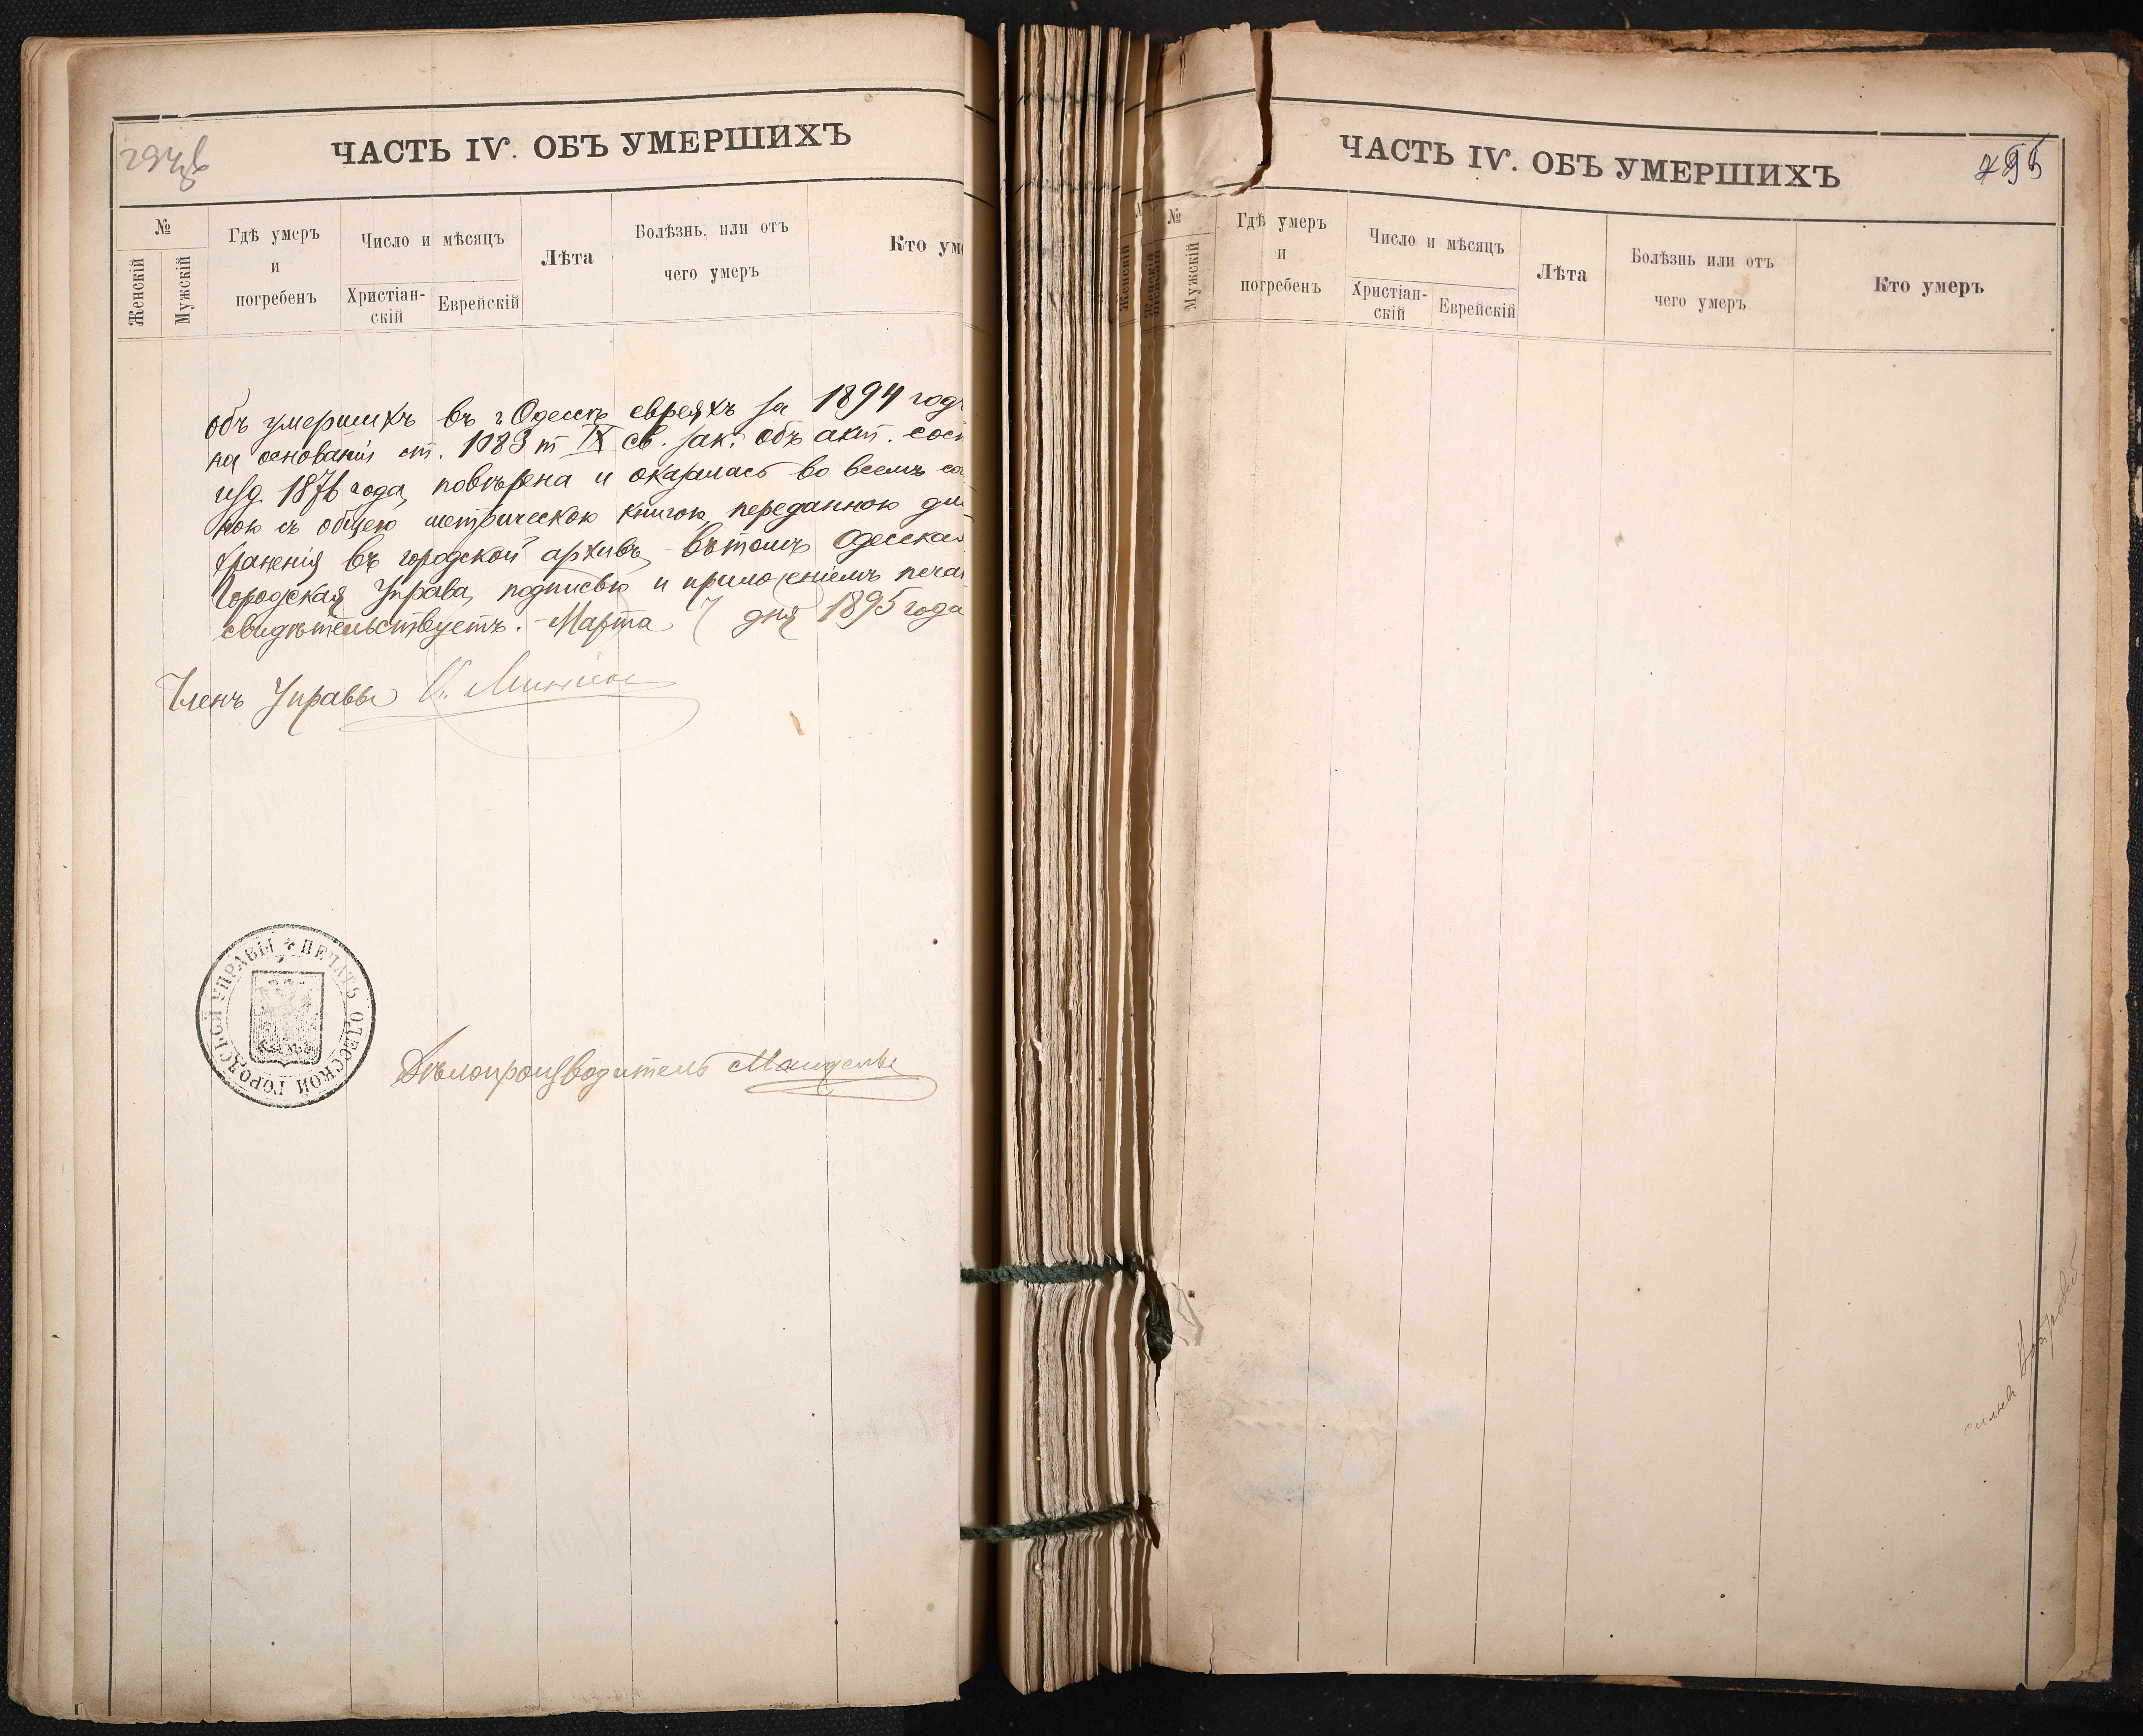 ЧАСТЬ IV. ОБЪ УМЕРШИХЪ
№
Женскій
Мужскій
Гдѣ умеръ
и
погребенъ
Число и мѣсяцъ
Христіан-
скій
Еврейскій
Лѣта
Болѣзнь, или отъ
чего умеръ
Кто уме
объ умершихъ въ г. Одессѣ евреяхъ за 1894 годъ
на основаніи ст. 1083 т IX св. зак. объ акт. сост
изд. 1876 года, повѣрена и оказалась во всемъ со
ною съ общею метрическою книгою, переданною дл
храненія въ городской архивъ, въ томъ Одесская
Городская Управа, подписью и приложеніемъ печа
свидѣтельствуетъ. Марта 7 дня 1895 года
Членъ Управы
ПЕЧАТЬ ОДЕССКОЙ ГОРОДСКОЙ УПРАВЫ
Дѣлопроизводитель
ЧАСТЬ IV. ОБЪ УМЕРШИХЪ
295
№
Женскій
Мужскій
Гдѣ умеръ
и
погребенъ
Число и мѣсяцъ
Христіан-
скій
Еврейскій
Лѣта
Болѣзнь или отъ
чего умеръ
Кто умеръ